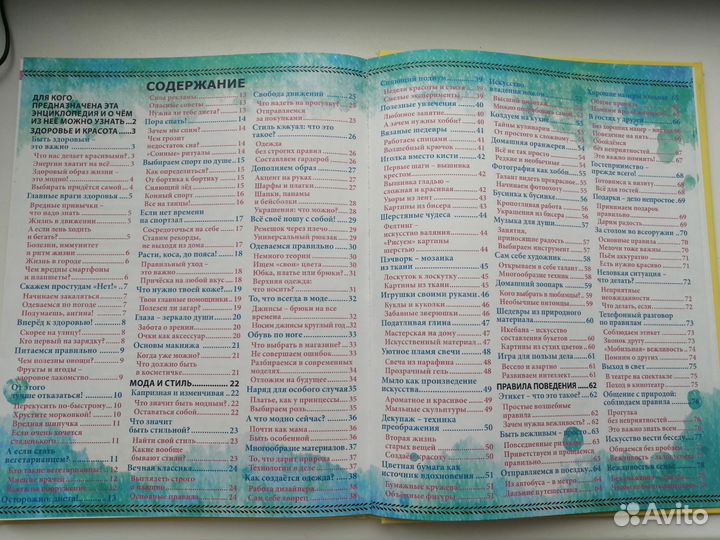 СОДЕРЖАНИЕ
ДЛЯ КОГО
ПРЕДНАЗНАЧЕНА ЭТА
ЭНЦИКЛОПЕДИЯ И О ЧЁМ
ИЗ НЕЁ МОЖНО УЗНАТЬ ...2
ЗДОРОВЬЕ И КРАСОТА......3
Быть здоровый –
это важно ........ 3
Что нас делает красивыми? . 3
Энергии хватит на всё! ........ 3
Здоровый образ жизни –
это модно! ........ 4
Выбирать придётся самой .. 4
Главные враги здоровья ........ 5
Вредные привычки –
что надо знать ........ 5
Жизнь в движении ........ 5
А если день ходить
и бегать? ........ 5
Болезни, иммунитет
и ритм жизни ........ 6
Жизнь в городе ........ 6
Чем вредны смартфоны
и планшеты ........ 6
Скажем простудам «Нет!» ..7
Начинаем закаляться ........ 7
Одеваемся по погоде ........ 7
Подумаешь, ангина! ........ 7
Вперёд к здоровью! ........ 8
Скорее на улицу! ........ 8
Кто первый на зарядку? ........ 8
Питаемся правильно ........ 9
Чем полезны овощи? ........ 9
Фрукты и ягоды –
здоровое лакомство ........ 9
От этого
лучше отказаться! ........ 10
Перекусить по-быстрому .. 10
Хрустите морковкой! ........ 10
Вредная шипучка ........ 11
Если очень хочется
сладенького ........ 11
А если стать
вегетарианцем? ........ 11
Кто такие вегетарианцы? .. 11
Мнение врачей ........ 12
Осторожно: диета! ........ 13
Сила рекламы ........ 13
Опасные советы ........ 13
Нужна ли тебе диета? ........ 13
Пора спать! ........ 14
Зачем мы спим? ........ 14
Чем грозит
недостаток сна? ........ 14
«Сонные» ритуалы ........ 14
Выбираем спорт по душе .. 15
Как определиться? ........ 15
От бортика к бортику ........ 15
Сияющий лёд ........ 15
Конный спорт ........ 16
Все на танцы! ........ 16
Если нет времени
на спорт ........ 17
Сосредоточься на себе ........ 17
Ставим рекорды,
не выходя из дома ........ 17
Расти, коса, до пояса! ........ 18
Правильный уход –
это важно ........ 18
Причёска на любой вкус .. 18
Что нужно твоей коже? ........ 19
Твои главные помощники . 19
Полезен ли загар? ........ 19
Глаза – зеркало души ........ 20
Забота о зрении ........ 20
Очки как аксессуар ........ 20
Основы макияжа ........ 21
Когда уже можно? ........ 21
Что должно быть
в косметичке ........ 21
МОДА И СТИЛЬ ........ 22
Капризная и изменчивая .. 22
Что значит быть модным? .. 22
Оставаться собой ........ 22
Что значит
быть стильной? ........ 23
Найти свой стиль ........ 23
Какие вообще
бывают стили? ........ 23
Вечная классика ........ 24
Выглядеть строго
и изящно ........ 24
Основные правила ........ 24
Свобода движений ........ 25
Что надеть на прогулку? .. 25
Отправляемся
за покупками ........ 25
Стиль кэжуал: что это
такое? ........ 26
Одежда
без строгих правил ........ 26
Составляем гардероб ........ 26
Дополняем образ ........ 27
Акцент на руках ........ 27
Шарфы и платки ........ 27
Шапки, панамы
и бейсболки ........ 28
Украшения: что можно? .. 28
Всё своё ношу с собой! ........ 29
Ремешок через плечо ........ 29
Универсальный рюкзак ........ 29
Одеваемся правильно ........ 30
Немного теории ........ 30
Ищем «свои» цвета ........ 30
Юбка, платье или брюки? . 31
Верхняя одежда
носится так ........ 31
То, что всегда в моде ........ 32
Джинсы – брюки на все
времена ........ 32
Носим джинсы круглый год . 32
Обувь по ноге ........ 33
Что выбрать в магазине? .. 33
Не совершаем ошибок ........ 33
Разбираемся в современных
моделях ........ 34
Отложим на будущее ........ 34
Наряд для особого случая 35
Платье, как у принцессы .. 35
Выбираем роль ........ 35
А что модно сейчас? ........ 36
Почти как мама ........ 36
Быть особенной ........ 36
Многообразие материалов . 37
То, что дарит природа ........ 37
Технологии в деле ........ 37
Как создаётся одежда? ........ 38
Работа дизайнера ........ 38
Сам себе творец ........ 38
Сияющий подиум ........ 39
Недели красоты и стиля ........ 39
Смелые эксперименты ........ 39
Полезные увлечения ........ 40
Любимое занятие ........ 40
А зачем нужны хобби? ........ 40
Вязаные шедевры ........ 41
Работаем спицами ........ 41
Волшебный крючок ........ 41
Иголка вместо кисти ........ 42
Первые шаги –
крестом ........ 42
Вышивка гладью –
сложная и красивая ........ 42
Узоры из лент ........ 43
Картины из бисера ........ 43
Шерстяные чудеса ........ 44
Фелтинг –
искусство валяния ........ 44
«Рисуем» картины
шерстью ........ 44
Пэчворк – мозаика
из ткани ........ 45
Лоскуток к лоскутку ........ 45
Картины из ткани ........ 45
Игрушки своими руками .. 46
Куклы и куколки ........ 46
Забавные зверюшки ........ 46
Податливая глина ........ 47
Мастерская на дому ........ 47
Искусственный материал .. 47
Уютное пламя свечи ........ 48
Свеча из парафина ........ 48
Прозрачный гель ........ 48
Мыло как произведение
искусства ........ 49
Ароматное и красивое ........ 49
Мыльные скульптуры ........ 49
Декупаж – техника
преображения ........ 50
Вторая жизнь
старых вещей ........ 50
Создаём красоту ........ 50
Цветная бумага как
источник вдохновения ........ 51
Бумажные кружева ........ 51
Объёмные фигуры ........ 51
Искусство
владения ножом
Высший пилотаж
Колдуем на кухне
Тайны кулинарии
От простого к сложному
Домашняя оранжерея
Всё не так просто
Редкие и необычные
Фотография как хобби
Талант видеть прекрасное
Начинаем фотоохоту!
Бусинка к бусинке
Кропотливая работа
Украшения из бисера
Музыка для души
Занятия,
приносящие радость
Выбираем инструмент
Сам себе художник
Открываем в себе талант
Многообразие техник
Домашний зоопарк
Кого выбрать в любимцы? .. 59
Необычные питомцы ........ 59
Шедевры из природного
материала ........ 60
Икебана – искусство
составления букетов ........ 60
Картины из сухих цветов .. 60
Игра для пользы дела ........ 61
Весело и полезно ........ 61
Квест и квиз ........ 61
ПРАВИЛА ПОВЕДЕНИЯ ......62
Этикет – что это такое? ........ 62
Простые волшебные
правила ........ 62
Зачем нужны запреты? ........ 62
Быть вежливым – легко! .. 63
Повседневные ритуалы ........ 63
Приветствуем и прощаемся
правильно ........ 63
Отправляемся в поездку ........ 64
Из автобуса – в метро ........ 64
Дальние путешествия ........ 64
Хорошие манеры
Общие правила
В гостях у друзей
Без хороших манер – никуда
Поведение за столом
Обойтись
без неприятностей
Это нужно помнить!
Гостеприимство –
прежде всего!
Готовимся к визиту
Всё для гостей
Подарки – дело непростое ..69
Принимаем подарок
правильно
Дарим радость
За столом во всеоружии
Основные правила
Мелочи тоже важны
Пьём аккуратно
Есть нужно красиво!
Неловкая ситуация –
что делать?
Неприятные
неожиданности
Что делать, если
Телефонный разговор
по правилам
Соблюдаем этикет
Звонок другу
«Мобильная» вежливость
Помним о других
Выход в свет
В театре на спектакле
Поход в кинотеатр
Общение с природой:
соблюдаем правила
Прогулка
без неприятностей
Это важно знать всем
Искусство вести беседу
Общаемся без проблем
Вежливость в сети
Avito